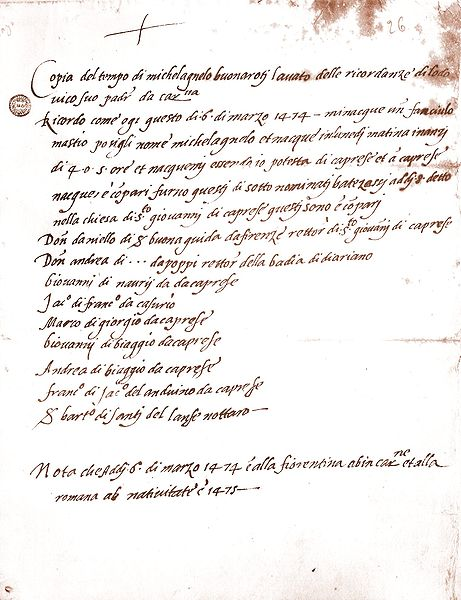 26
Copia del tempo di michelagnelo buonarotj lauato delle ricordanze di lodo
uico suo padre da carna
Ricordo come ogi questo di 6 di marzo 1474 - mi nacque un fanciulo
mastio po nigli nome michelagnelo et nacque in lunedj matina inanzj
di 4 o 5 ore et nacquemj essendo io potesta di caprese et a caprese
nacque e compari furno questj di sotto nominatj batezossj addj 8 detto
nella chiesa di sto giouannj di caprese questj sono e compari
Don daniello di s buonaguida da firenze rettor di sto giouanj di caprese
Don andrea di ... da poppi rettor della badia di diariano
Giouannj di naurj da caprese
Jaco di franco da casurio
Marco di giorgio da caprese
Giouannj di biaggio da caprese
Andrea di biaggio da caprese
franco di Jaco del anduino da caprese
S barto di santj del lanse nottaro —
Nota che addj 6 di marzo 1474 è alla fiorentina ab incarne et alla
romana ab natiuitate è 1475 —